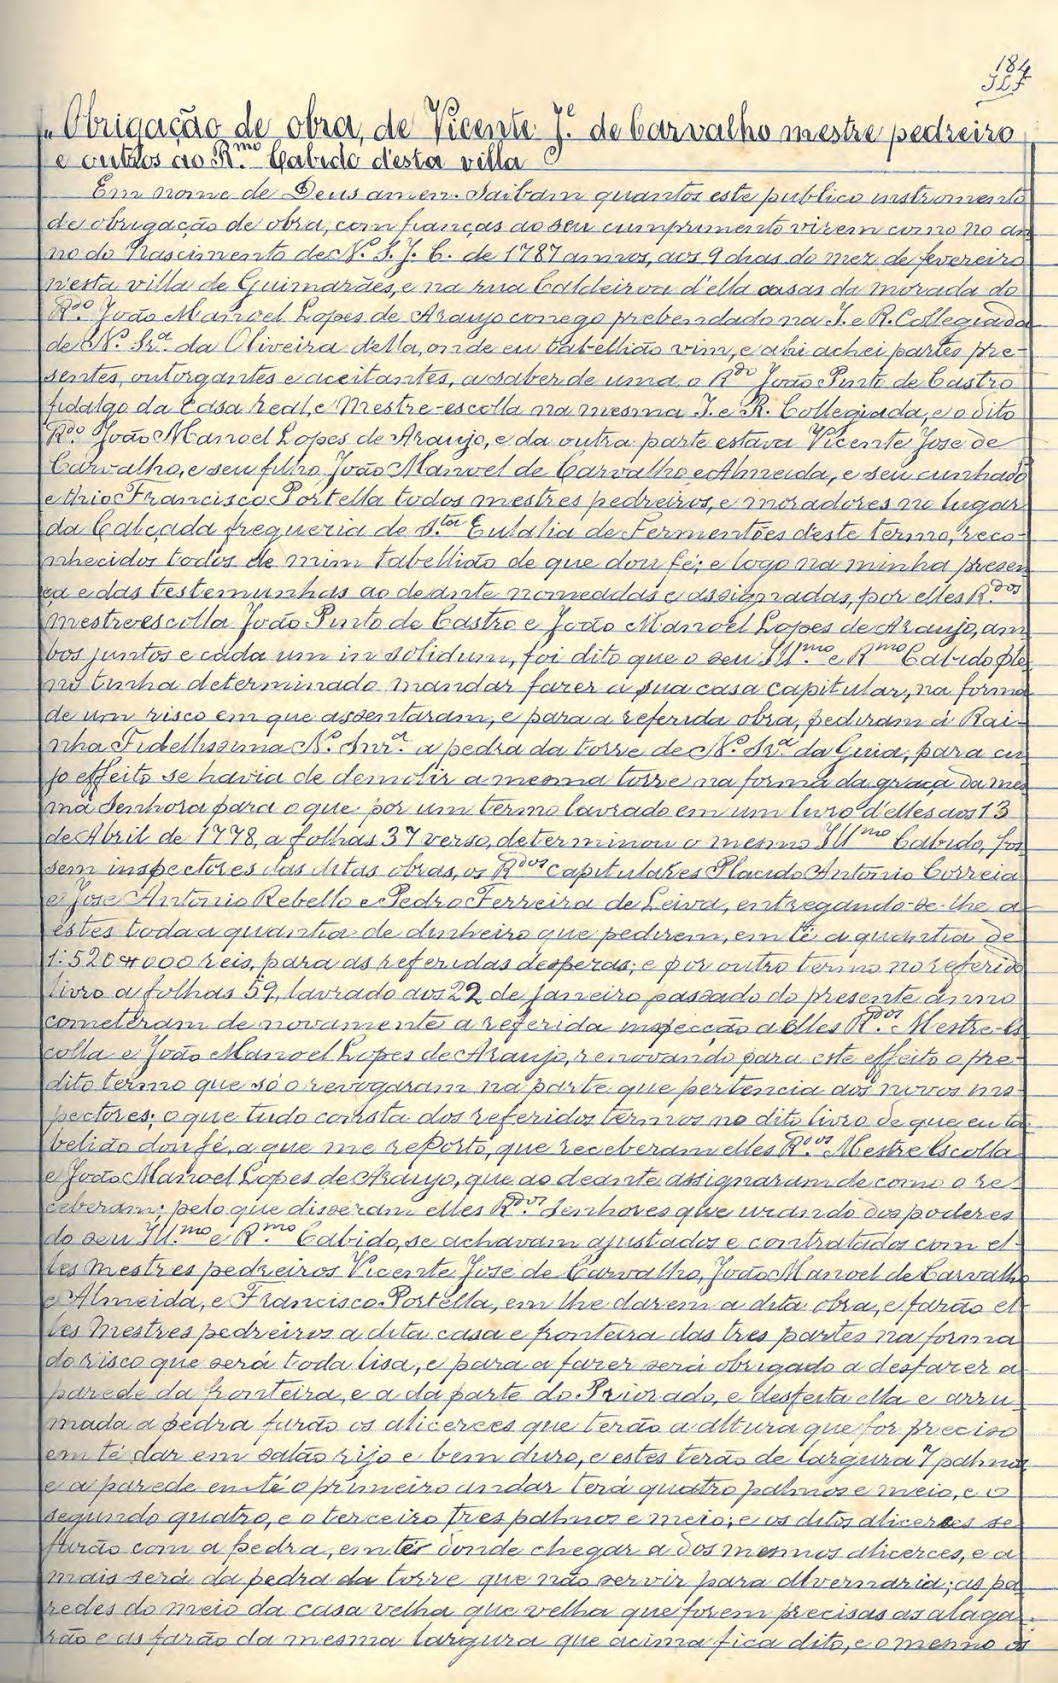 184
JLF
"Obrigação de obra, de Vicente J.e de Carvalho mestre pedreiro
e outros ao R.mo Cabido d'esta villa
Em nome de Deus amen. Saibam quantos este publico instromento
de obrigação de obra, com fianças ao seu cumprimento virem como no an
no do Nascimento de N. S. J. C. de 1787 annos, aos 9 dias do mez de fevereiro
n'esta villa de Guimarães, e na rua Caldeiroa d'ella casas da morada do
R.do João Manoel Lopes de Araujo conego prebendado na I. e R. Collegiada
de N.a Sr.a da Oliveira della, onde eu tabellião vim, e ahi achei partes pre-
sentes, outorgantes e aceitantes, a saber de uma o R.do João Pinto de Castro
fidalgo da Casa real, e Mestre-escolla na mesma I. e R. Collegiada, e o dito
R.do João Manoel Lopes de Araujo, e da outra parte estava Vicente Jose de
Carvalho, e seu filho João Manoel de Carvalho e Almeida, e seu cunhado
e thio Francisco Portella todos mestres pedreiros, e moradores no lugar
da Calçada fregueria de S.ta Eulalia de Fermentões d'este termo, reco-
nhecidos todos de mim tabellião de que dou fé; e logo na minha presen
ça e das testemunhas ao deante nomeadas e assignadas, por elles R.dos
Mestre-escolla João Pinto de Castro e João Manoel Lopes de Araujo, am
bos juntos e cada um in solidum, foi dito que o seu Ill.mo e R.mo Cabido ple
no tinha determinado mandar fazer a sua casa capitular, na forma
de um risco em que assentaram, e para a referida obra, pediram á Rai-
nha Fidelissima N.a Snr.a a pedra da torre de N.a Sr.a da Guia, para cu
jo effeito se havia de demolir a mesma torre na forma da graça da mes
ma Senhora para o que por um termo lavrado em um livro d'elles aos 13
de Abril de 1778, a folhas 37 verso, determinou o mesmo Ill.mo Cabido, fos
sem inspectores das ditas obras, os R.dos capitulares Placido Antonio Correia
e Jose Antonio Rebello e Pedro Ferreira de Leiva, entregando-se-lhe a
estes toda a quantia de dinheiro que pedirem, em té a quantia de
1:520#000 reis, para as referidas despezas; e por outro termo no referido
livro a folhas 59, lavrado aos 22 de Janeiro passado do presente anno
cometeram de novamente a referida inspecção a elles R.dos Mestre-Es
colla e João Manoel Lopes de Araujo, renovando para este effeito o pre-
dito termo que só o revogaram na parte que pertencia aos novos ins-
pectores; o que tudo consta dos referidos termos no dito livro de que eu ta
belião dou fé, a que me reporto, que receberam elles R.dos Mestre Escolla
e João Manoel Lopes de Araujo, que ao deante assignaram de como o re-
ceberam; pelo que disseram elles R.dos Senhores que uzando dos poderes
do seu Ill.mo e R.mo Cabido, se achavam ajustados e contratados com el-
les mestres pedreiros Vicente Jose de Carvalho, João Manoel de Carvalho
e Almeida, e Francisco Portella, em lhe darem a dita obra, e farão el-
les Mestres pedreiros a dita casa e fronteira das tres partes na forma
do risco que será toda lisa, e para a fazer será obrigado a desfazer a
parede da fronteira, e a da parte do Priorado, e desfeita ella e arru
mada a pedra farão os alicerces que terão a altura que for preciso
em té dar em salão rijo e bem duro, e estes terão de largura 7 palmos
e a parede em té o primeiro andar terá quatro palmos e meio, e o
segundo quatro, e o terceiro tres palmos e meio; e os ditos alicerces se
farão com a pedra, em té donde chegar a dos mesmos alicerces, e a
mais será da pedra da torre que não servir para alvernaria; as pa
redes do meio da casa velha que velha que forem precisas as alaga
rão e as farão da mesma largura que acima fica dito, e o mesmo os